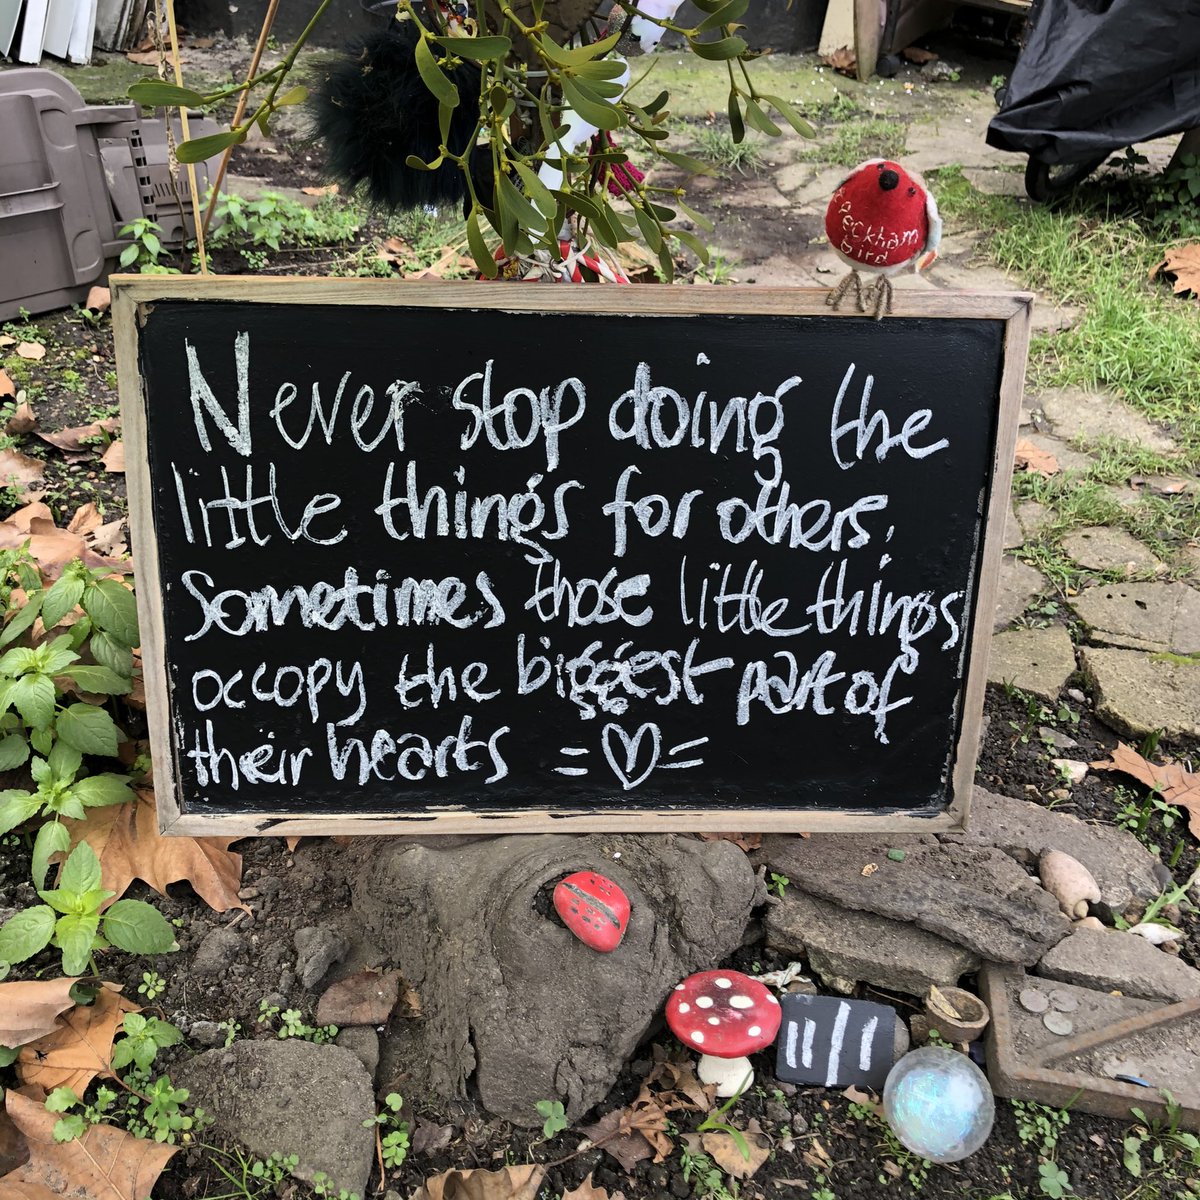 Peckham
bird
Never stop doing the
little things for others.
Sometimes those little things
occopy the biggest part of
their hearts =♡=